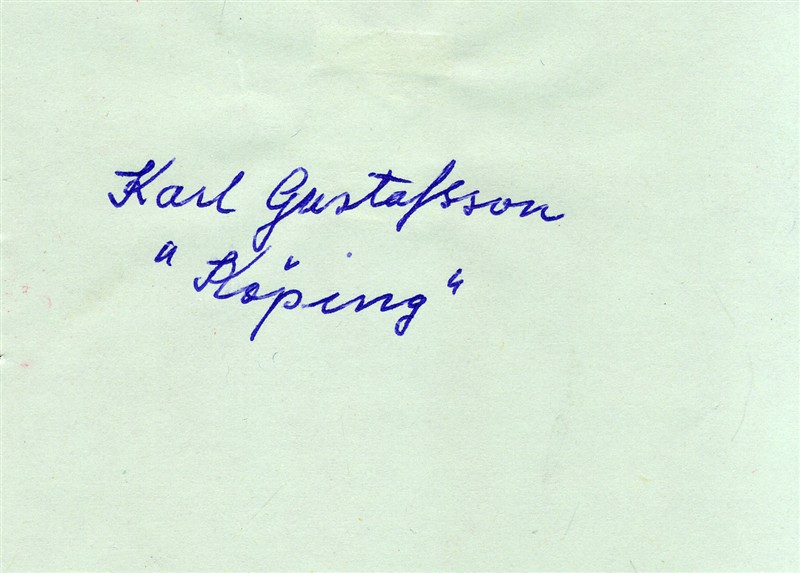 Karl Gustafsson
"Köping"